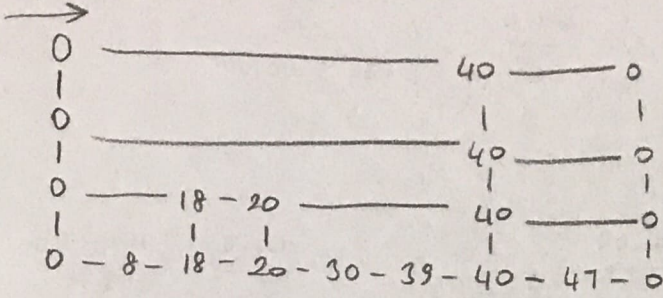 0 40 0
0 40 0
0 18 20 40 0
0 8 18 20 30 39 40 47 0